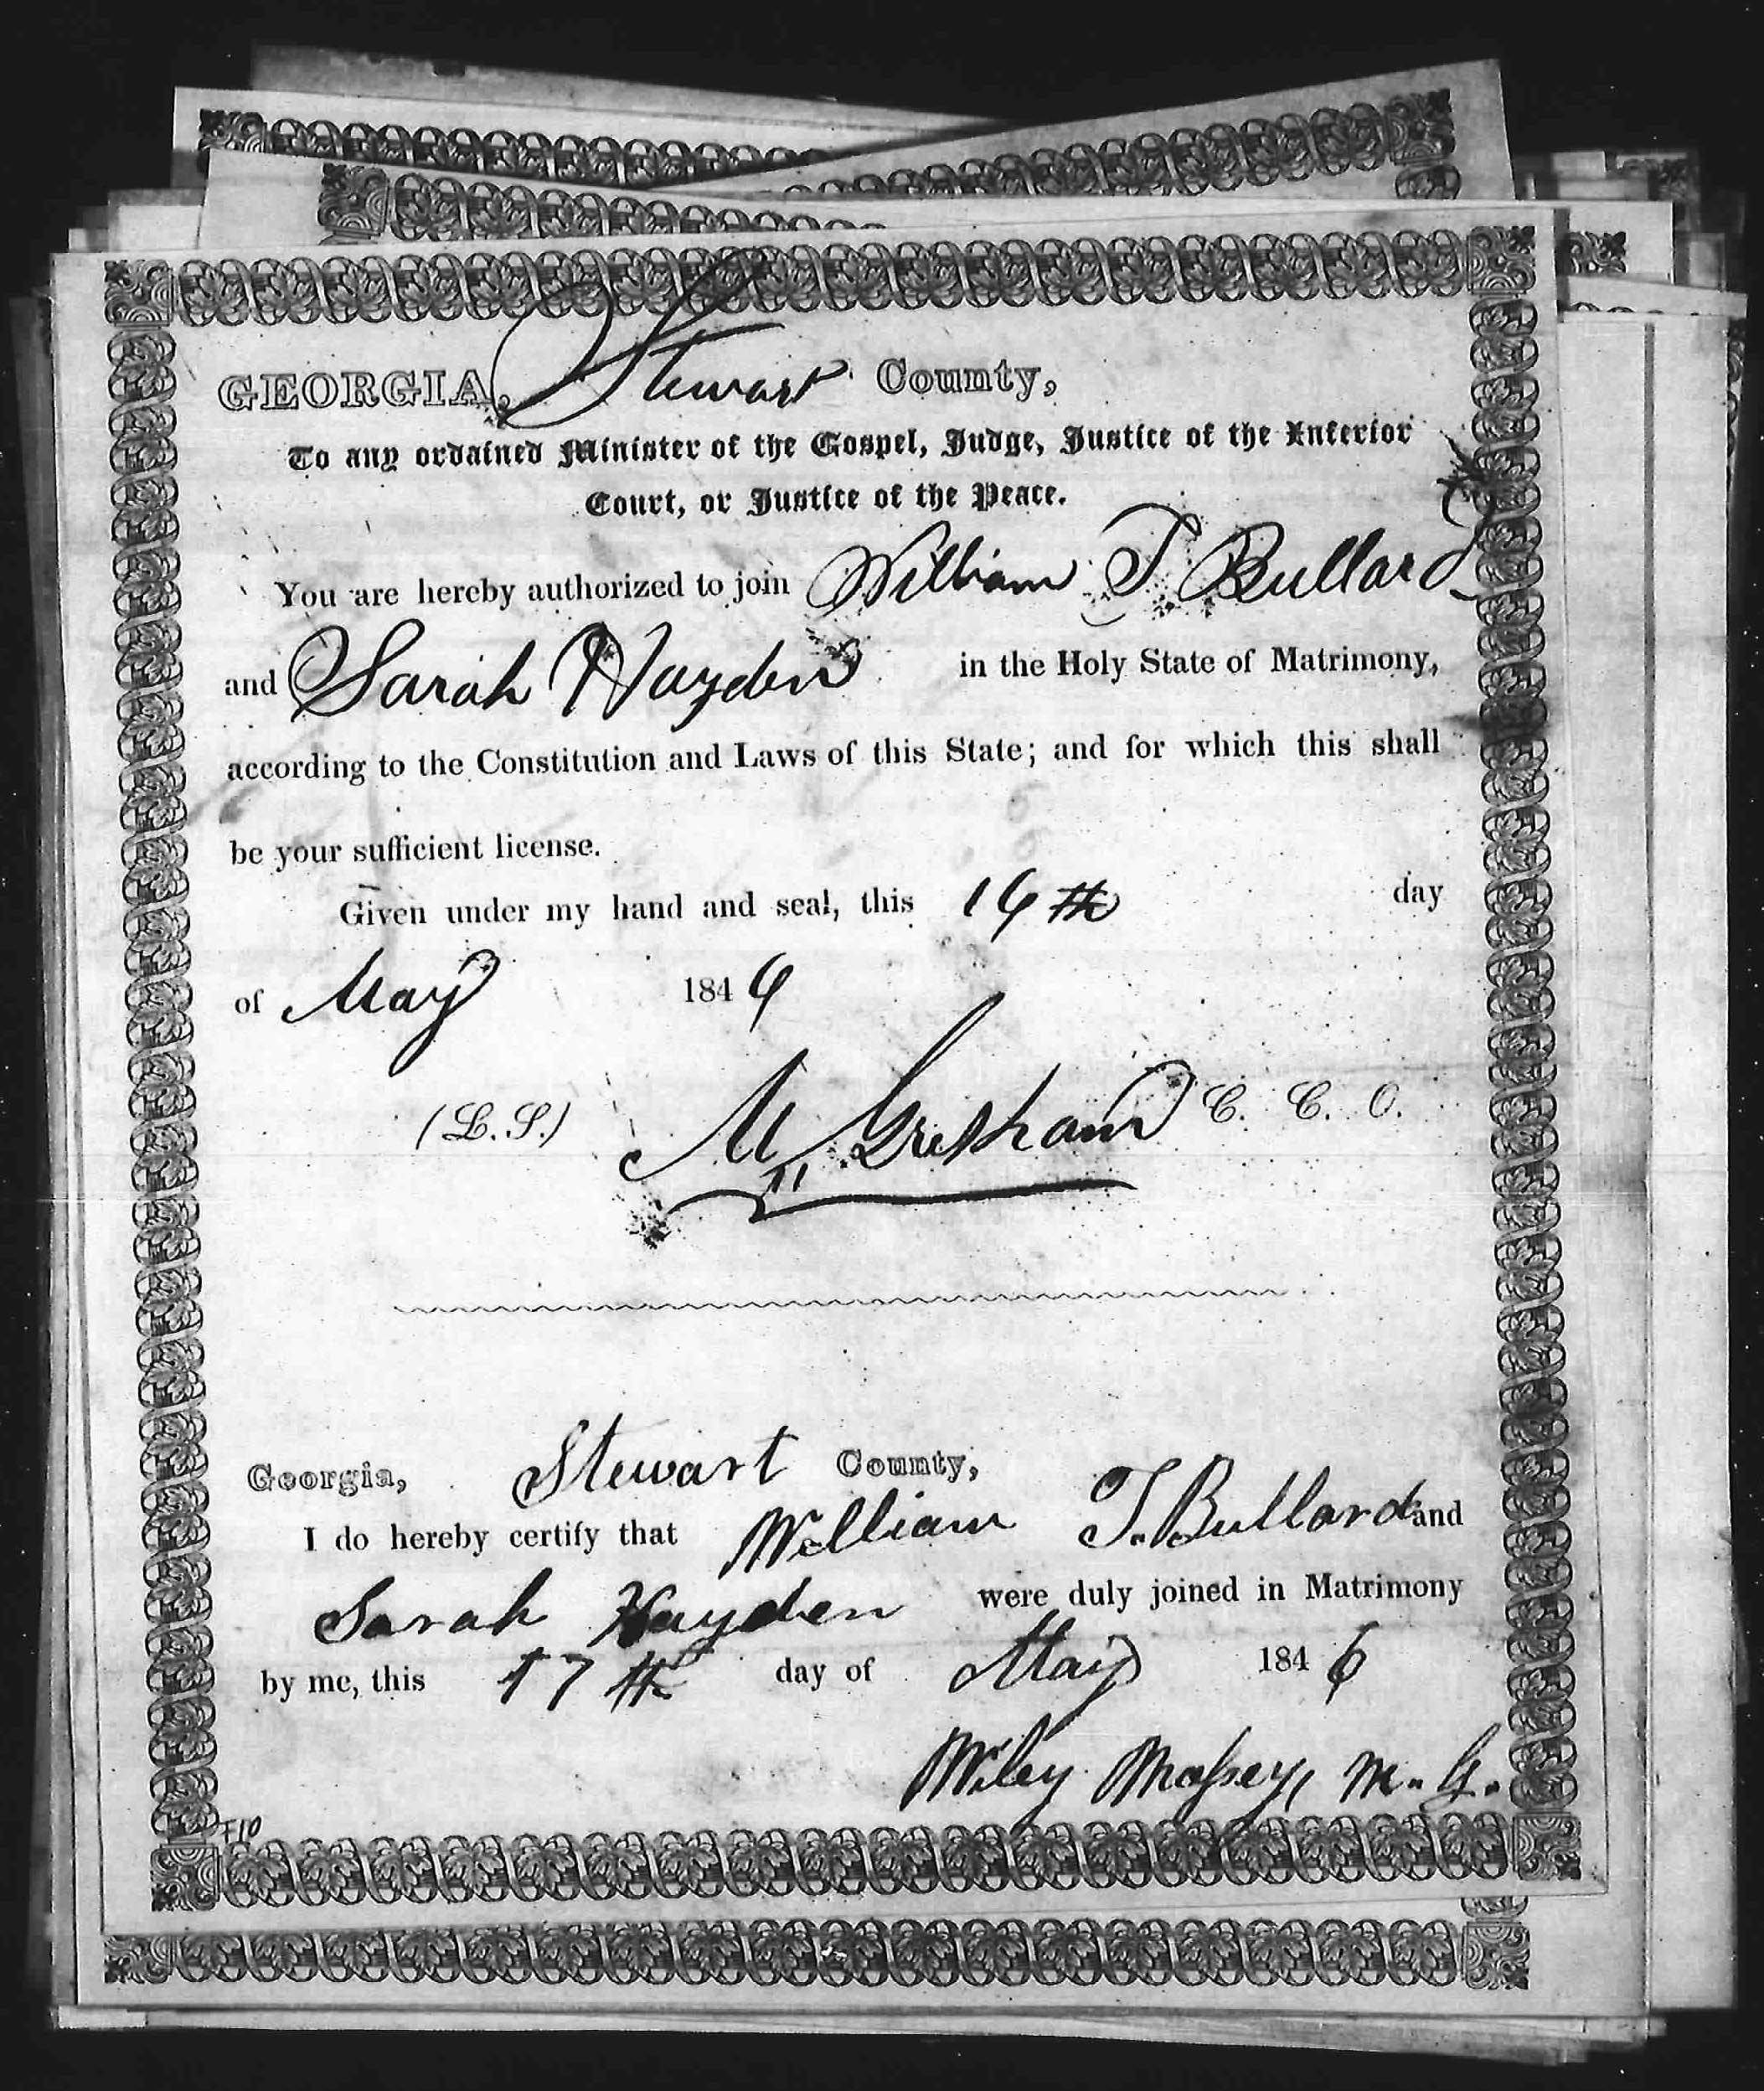 GEORGIA, Stewart County,
To any ordained Minister of the Gospel, Judge, Justice of the Inferior
Court, or Justice of the Peace.
You are hereby authorized to join William T Bullard
and Sarah Hayden in the Holy State of Matrimony,
according to the Constitution and Laws of this State; and for which this shall
be your sufficient license.
Given under my hand and seal, this 16th day
of May 1846
(L.S.) M Gresham C. C. O.
Georgia, Stewart County,
I do hereby certify that William T. Bullard and
Sarah Hayden were duly joined in Matrimony
by me, this 17th day of May 1846
Wiley Massey, M. G.
F10